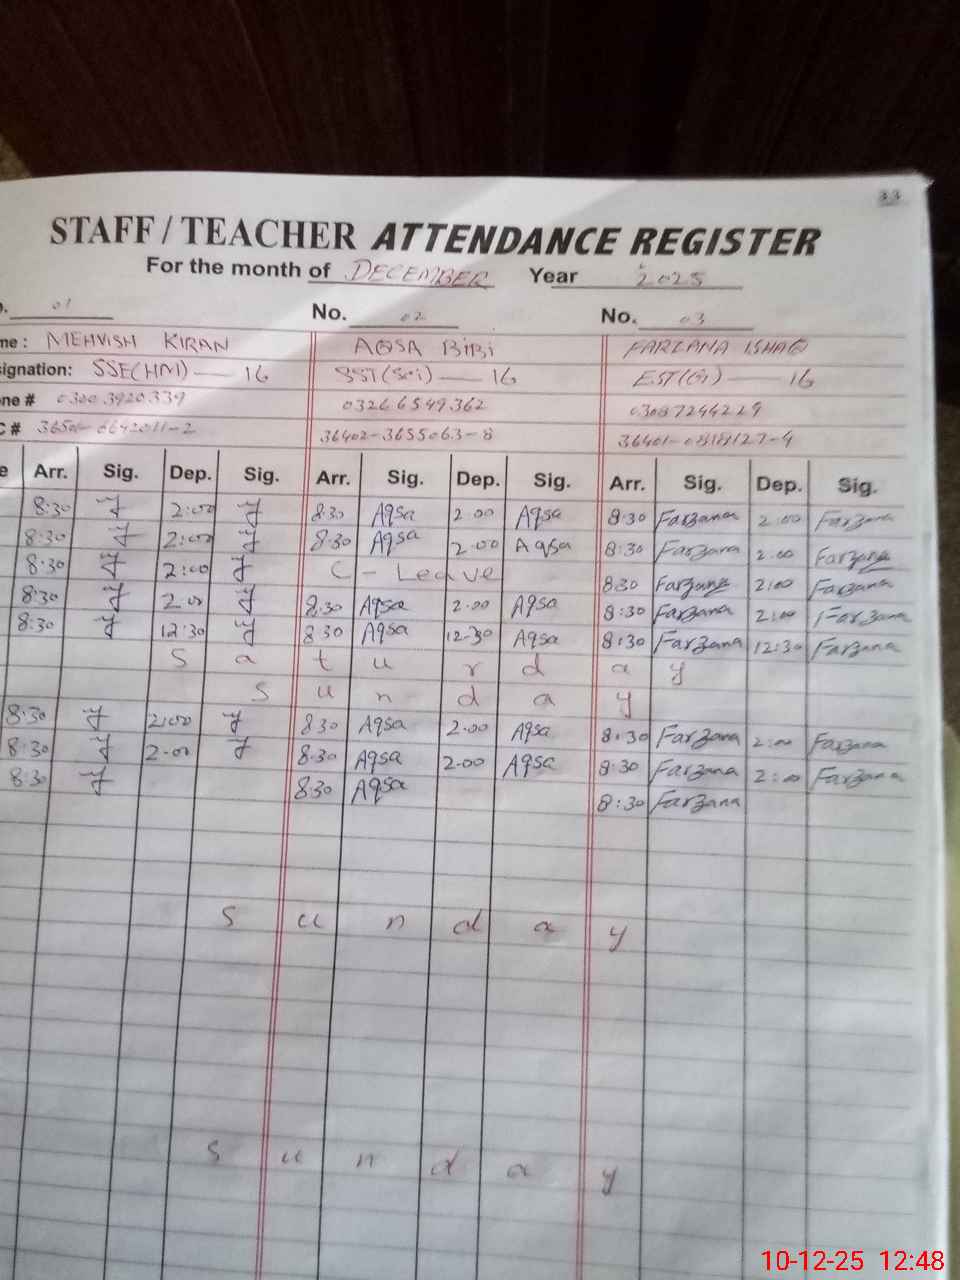 33
STAFF / TEACHER ATTENDANCE REGISTER
For the month of DECEMBER Year 2025
01 No. 02 No. 03
me: MEHVISH KIRAN AQSA BiBi FARZANA ISHAQ
signation: SSE(HM) — 16 SST(Sci) — 16 EST(G) — 16
one # 0300 3920339 0326 6549362 0308 7244229
C # 36402-3655063-8 36401-0818127-4
e Arr. Sig. Dep. Sig. Arr. Sig. Dep. Sig. Arr. Sig. Dep. Sig.
8:30 2:00 8:30 Aqsa 2.00 Aqsa 8:30 Farzana 2:00 Farzana
8:30 2:00 8:30 Aqsa 2.00 Aqsa 8:30 Farzana 2.00 Farzana
8:30 2:00 C - Leave 8:30 Farzana 2:00 Farzana
8:30 2.00 8:30 Aqsa 2.00 Aqsa 8:30 Farzana 2:00 Farzana
8:30 12:30 8:30 Aqsa 12:30 Aqsa 8:30 Farzana 12:30 Farzana
S a t u r d a y
S u n d a y
8:30 2:00 8:30 Aqsa 2.00 Aqsa 8:30 Farzana 2:00 Farzana
8:30 2.00 8:30 Aqsa 2.00 Aqsa 8:30 Farzana 2:00 Farzana
8:30 8:30 Aqsa 8:30 Farzana
S u n d a y
S u n d a y
10-12-25 12:48